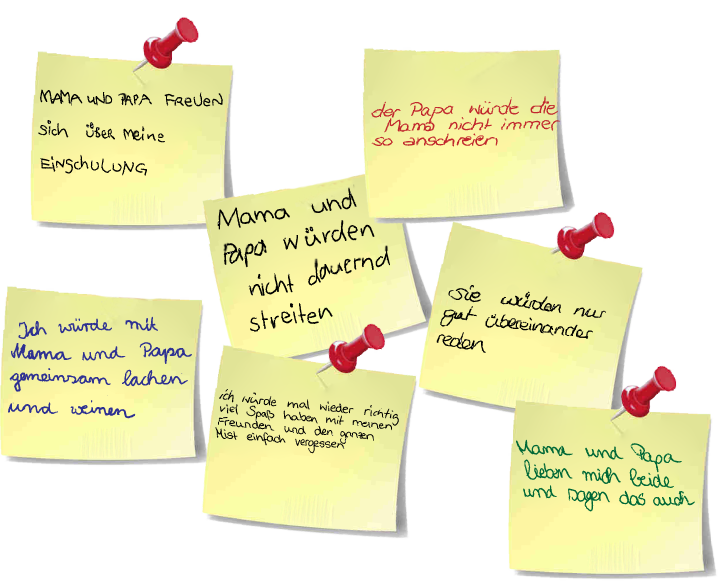 MAMA UND PAPA FREUEN
sich ÜBER MEINE
EINSCHULUNG
der Papa würde die
Mama nicht immer
so anschreien
Mama und
Papa würden
nicht dauernd
streiten
sie würden nur
gut übereinander
reden
Ich würde mit
Mama und Papa
gemeinsam lachen
und weinen
ich würde mal wieder richtig
viel Spaß haben mit meinen
Freunden und den ganzen
Mist einfach vergessen
Mama und Papa
lieben mich beide
und sagen das auch